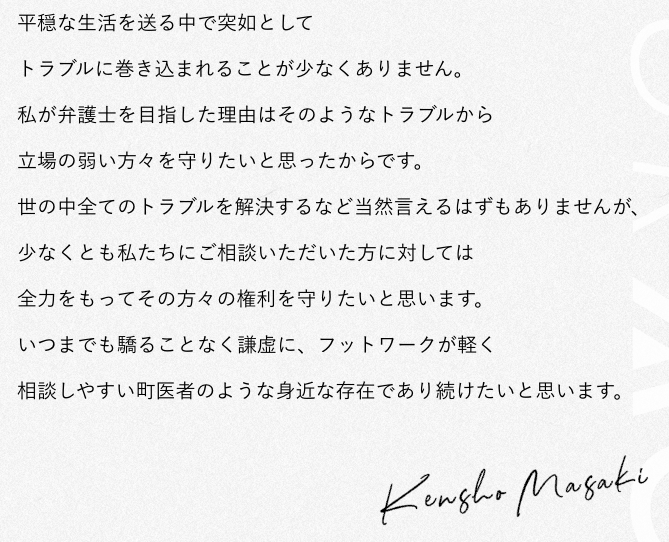 平穏な生活を送る中で突如として
トラブルに巻き込まれることが少なくありません。
私が弁護士を目指した理由はそのようなトラブルから
立場の弱い方々を守りたいと思ったからです。
世の中全てのトラブルを解決するなど当然言えるはずもありませんが、
少なくとも私たちにご相談いただいた方に対しては
全力をもってその方々の権利を守りたいと思います。
いつまでも驕ることなく謙虚に、フットワークが軽く
相談しやすい町医者のような身近な存在であり続けたいと思います。
Kensho Masaki